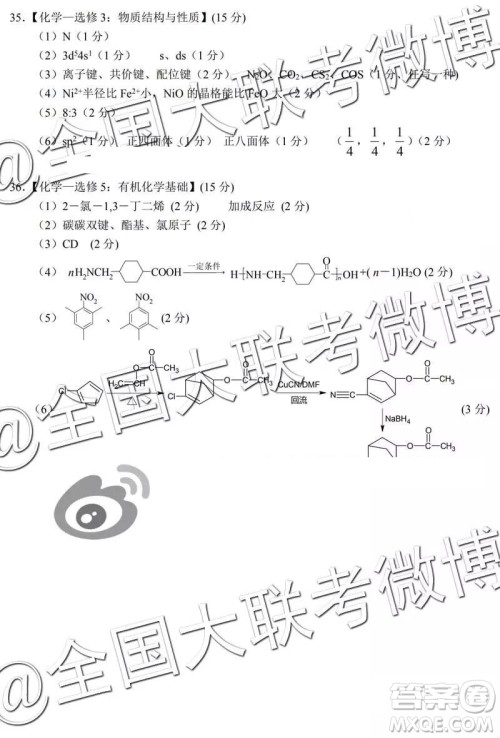 35.【化学—选修 3：物质结构与性质】(15 分)
（1）N（1 分）
（2）3d⁵4s¹（1 分） s、ds（1 分）
（3）离子键、共价键、配位键（2 分） N₂O、CO₂、CS₂、COS（1 分，任写一种）
（4）Ni²⁺半径比 Fe²⁺小，NiO 的晶格能比 FeO 大（2 分）
（5）8:3（2 分）
（6）sp²（1 分） 正四面体（1 分） 正八面体（1 分） （1/4，1/4，1/4）（2 分）
36.【化学—选修 5：有机化学基础】(15 分)
（1）2－氯－1,3－丁二烯 加成反应（2 分）
（2）碳碳双键、酯基、氯原子（2 分）
（3）CD （2 分）
（4） nH₂NCH₂ COOH 一定条件 H [NH-CH₂ C(=O)]n OH +(n－1)H₂O (2 分)
（5） NO₂ 、 NO₂ (2 分)
（6） Cl O CH₃ △ Cl O CH₃ CuCN/DMF 回流 N≡ O CH₃ (3 分)
NaBH₄
O CH₃
@全国大联考微博
@全国大联考微博
答案圈
MXQE.COM